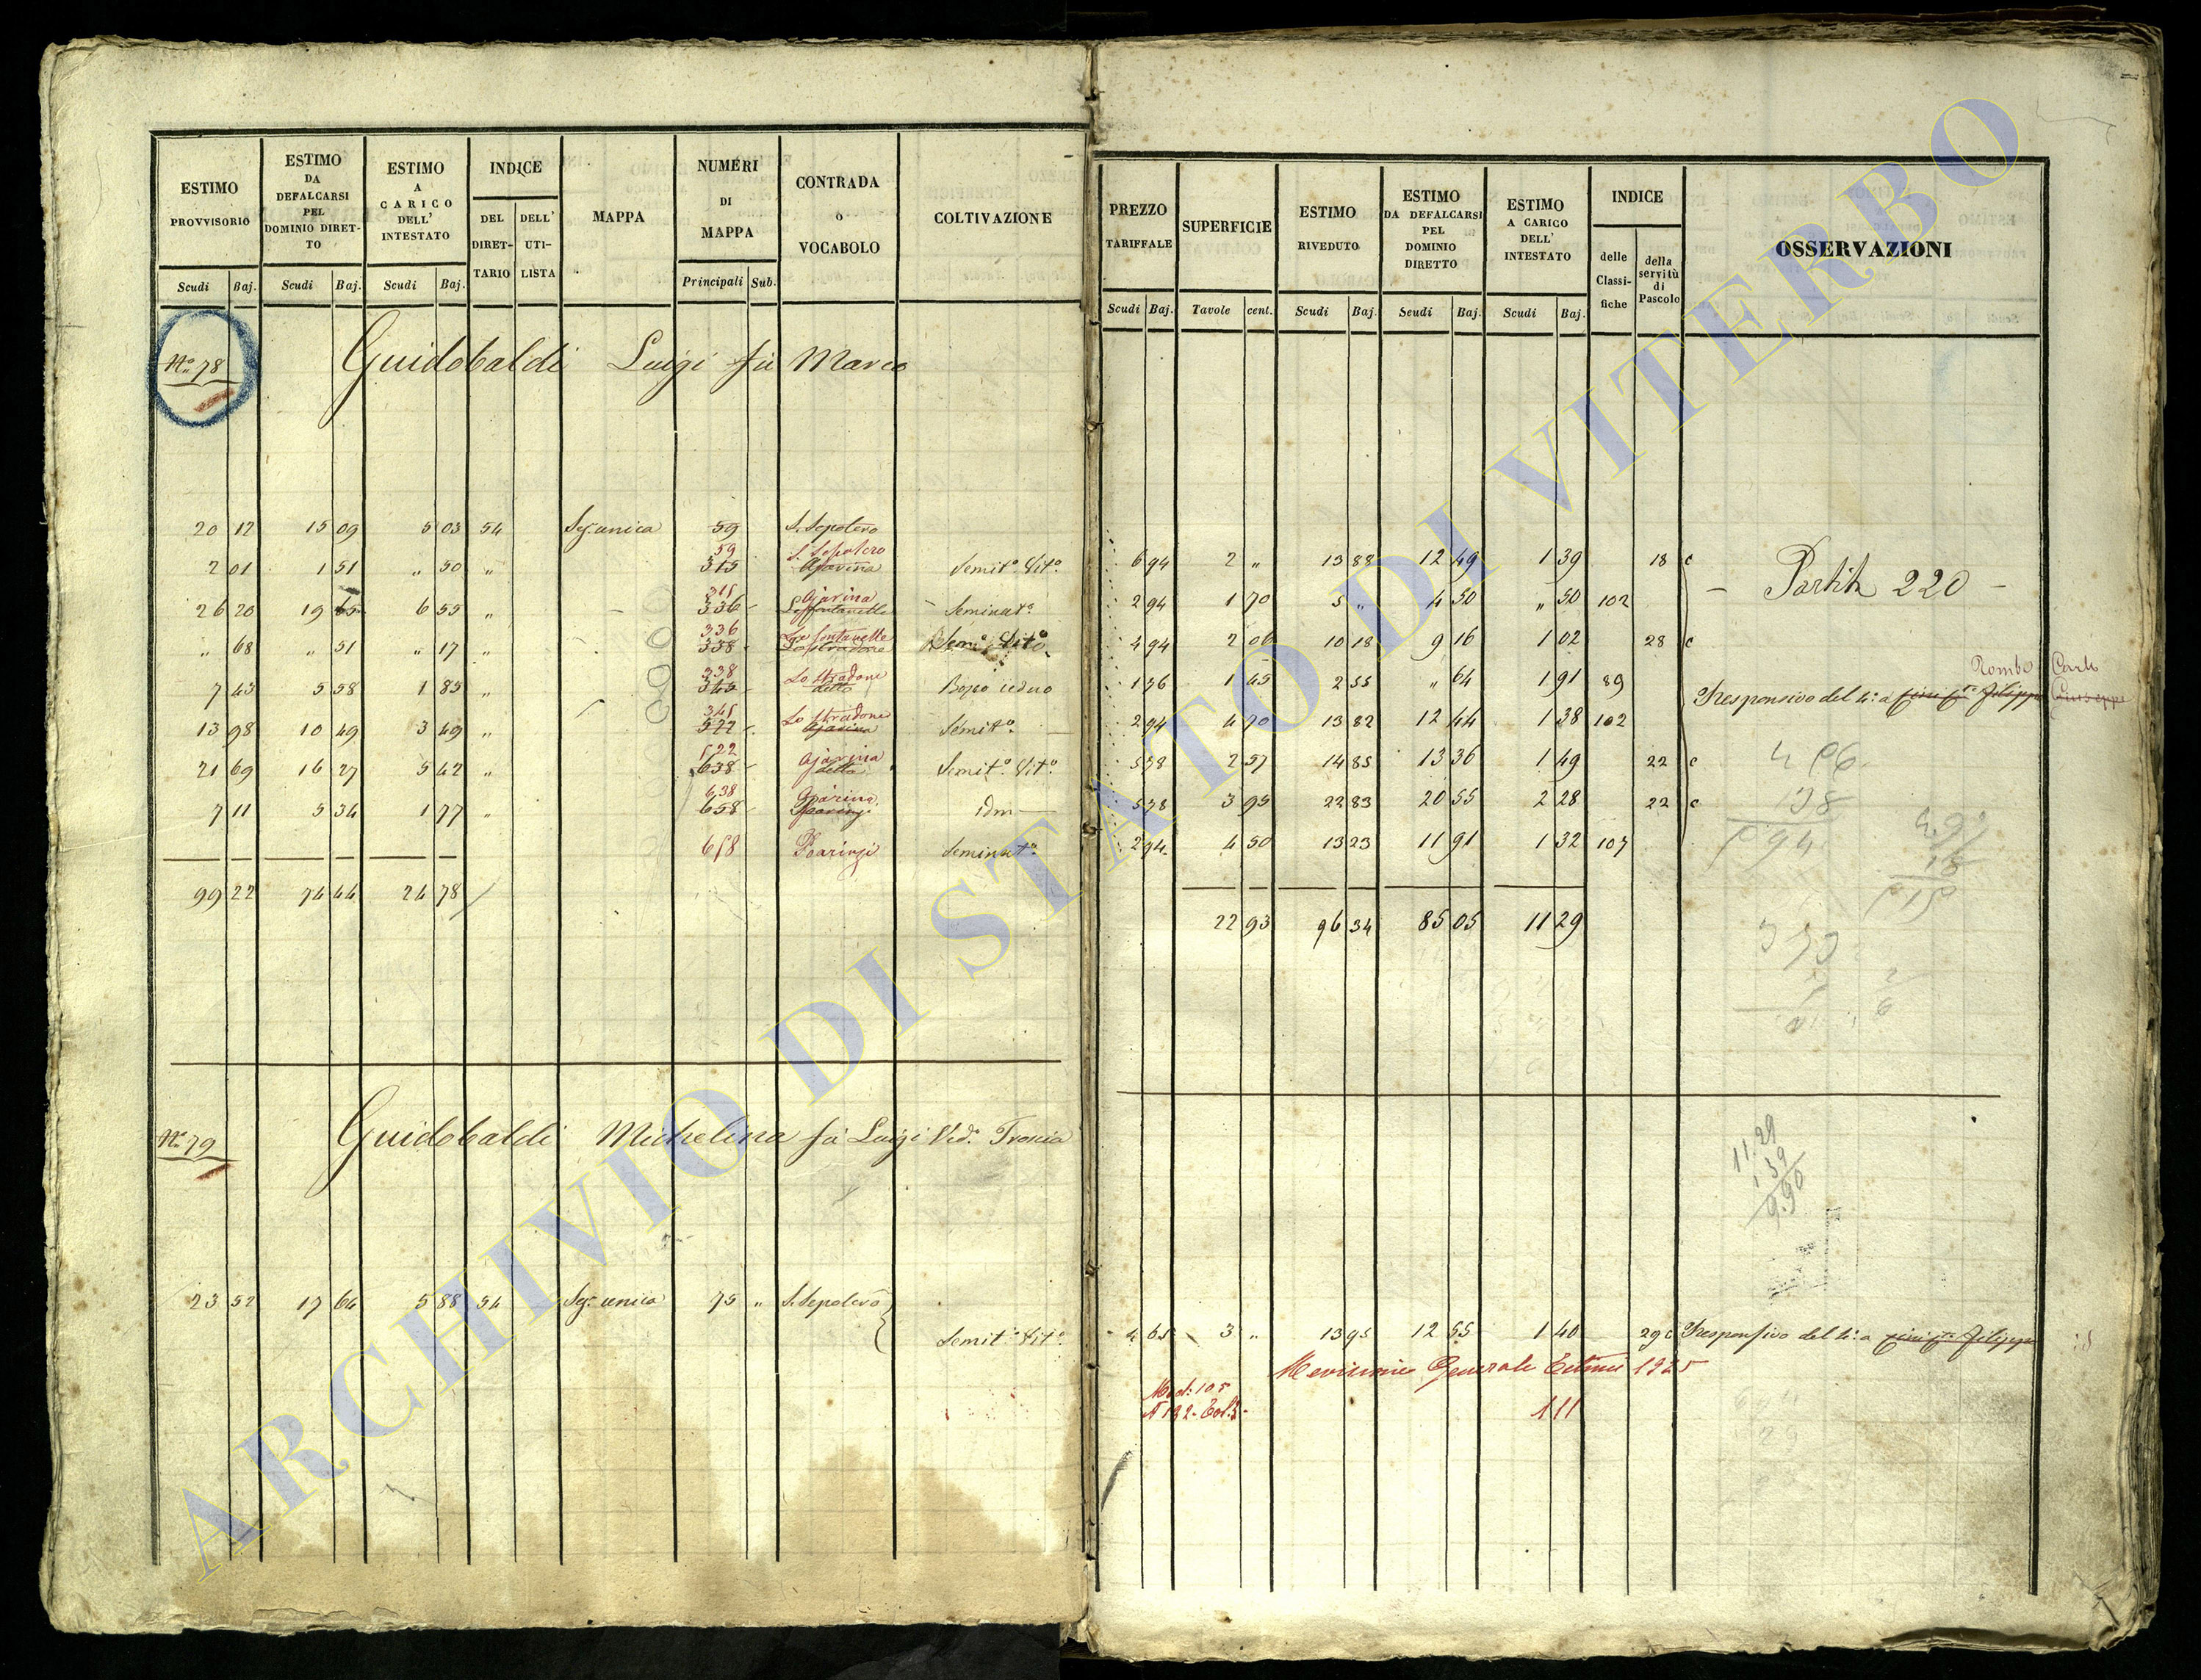 ESTIMO PROVVISORIO
ESTIMO DA DEFALCARSI PEL DOMINIO DIRET-TO
ESTIMO A CARICO DELL' INTESTATO
INDICE
DEL DIRET-TARIO
DELL' UTI-LISTA
MAPPA
NUMERI DI MAPPA
CONTRADA O VOCABOLO
COLTIVAZIONE
Scudi Baj. Scudi Baj. Scudi Baj. Principali Sub.
N.° 78 Guidobaldi Luigi fù Marco
20 12 15 09 5 03 54 Sez. unica 59 S. Sepolcro
59 S. Sepolcro
2 01 1 51 „ 50 „ 315 Ajarina Semit.° Vit.°
315 Ajarina
26 20 19 65 6 55 „ 336 Le fontanelle Seminat.°
336 Le fontanelle
„ 68 „ 51 „ 17 „ 338 Lo stradone Sem.° Vit.°
338 Lo stradone
7 43 5 58 1 85 „ 345 detto Bosco ceduo
345 Lo stradone
13 98 10 49 3 49 „ 522 Ajarina Semit.°
522 Ajarina
21 69 16 27 5 42 „ 638 detto Semit.° Vit.°
638 Ajarina
7 11 5 34 1 77 „ 658 idm
658 Seminat.°
99 22 74 44 24 78
N.° 79 Guidobaldi Michelina fù Luigi Ved.
23 52 17 64 5 88 54 Sez. unica 75 „ S. Sepolcro
Semit.° Vit.°
PREZZO TARIFFALE
SUPERFICIE
ESTIMO RIVEDUTO
ESTIMO DA DEFALCARSI PEL DOMINIO DIRETTO
ESTIMO A CARICO DELL' INTESTATO
INDICE
delle Classi-fiche
della servitù di Pascolo
OSSERVAZIONI
Scudi Baj. Tavole cent. Scudi Baj. Scudi Baj. Scudi Baj.
6 94 2 „ 13 88 12 49 1 39 18 c
Partita 220
2 94 1 70 5 „ 4 50 „ 50 102
4 94 2 06 10 18 9 16 1 02 28 c
Carlo
1 76 1 45 2 55 „ 64 1 91 89
Responsivo del 4.° a Filippo Giuseppe
2 94 4 70 13 82 12 44 1 38 102
5 78 2 57 14 85 13 36 1 49 22 c
5 78 3 95 22 83 20 55 2 28 22 c
2 94 4 50 13 23 11 91 1 32 107
22 93 96 34 85 05 11 29
11,29
1,39
9,90
4 65 3 „ 13 95 12 55 1 40 29 c Responsivo del 4.° a Filippo
Revisione Generale Estimi 1925
Mod. 105
N 182
1 11
ARCHIVIO DI STATO DI VITERBO